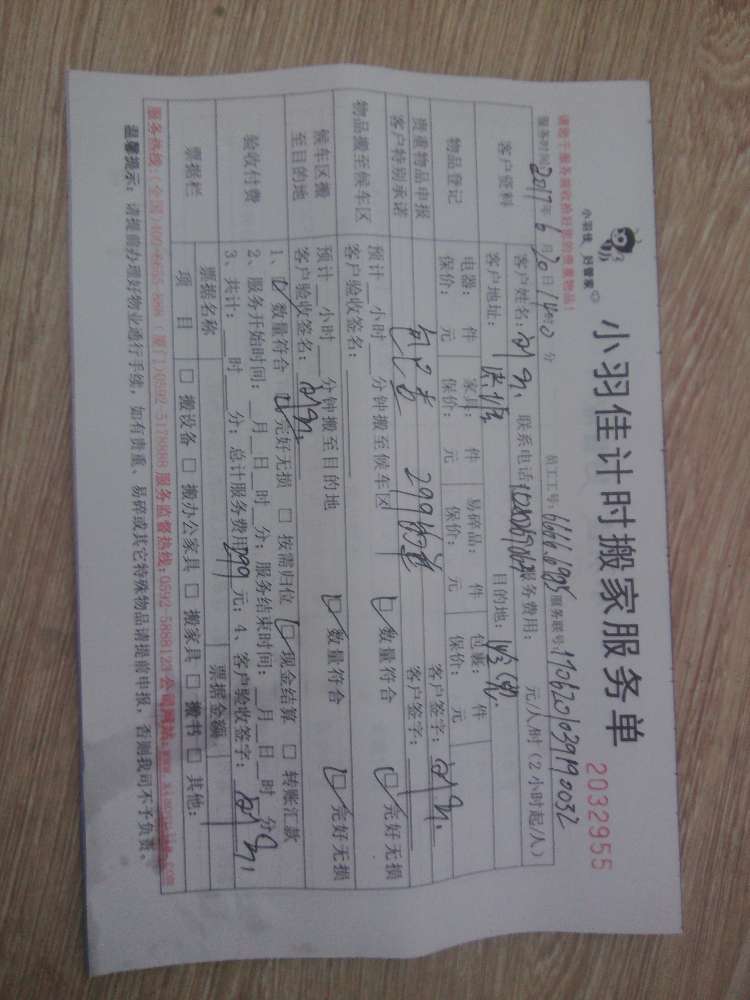 小羽佳 好管家
小羽佳计时搬家服务单
2032956
请您于服务前收拾好您的贵重物品！
服务时间 2017年 6月20日 14:00分
员工工号：
服务联号：
客户资料
客户姓名：
联系电话：
服务费用： 元/人/时（2小时起/人）
客户地址：
目的地：
物品登记
电器： 件 家具： 件 易碎品： 件 包裹： 件
保价： 元 保价： 元 保价： 元 保价： 元
贵重物品申报
客户签字：
客户特别承诺
299
客户签字：
物品搬至候车区
预计 小时 分钟搬至候车区
数量符合 完好无损
客户验收签名：
候车区搬至目的地
预计 小时 分钟搬至目的地
数量符合 完好无损
客户验收签名：
验收付费
1、数量符合 完好无损 □ 按需归位 现金结算 □ 转账汇款
2、服务开始时间： 月 日 时 分；服务结束时间： 月 日 时 分
3、共计： 时 分；总计服务费用 299 元；4、客户验收签字：
票据栏
票据名称
票据金额
项目
□ 搬设备 □ 搬办公家具 □ 搬家具 □ 搬书 □ 其他：
服务热线：(全国) (厦门)0592-5178888 服务监督热线：0592-5888123 公司网站：
温馨提示：请提前办理好物业通行手续，如有贵重、易碎或其它特殊物品请提前申报，否则我司不予负责。